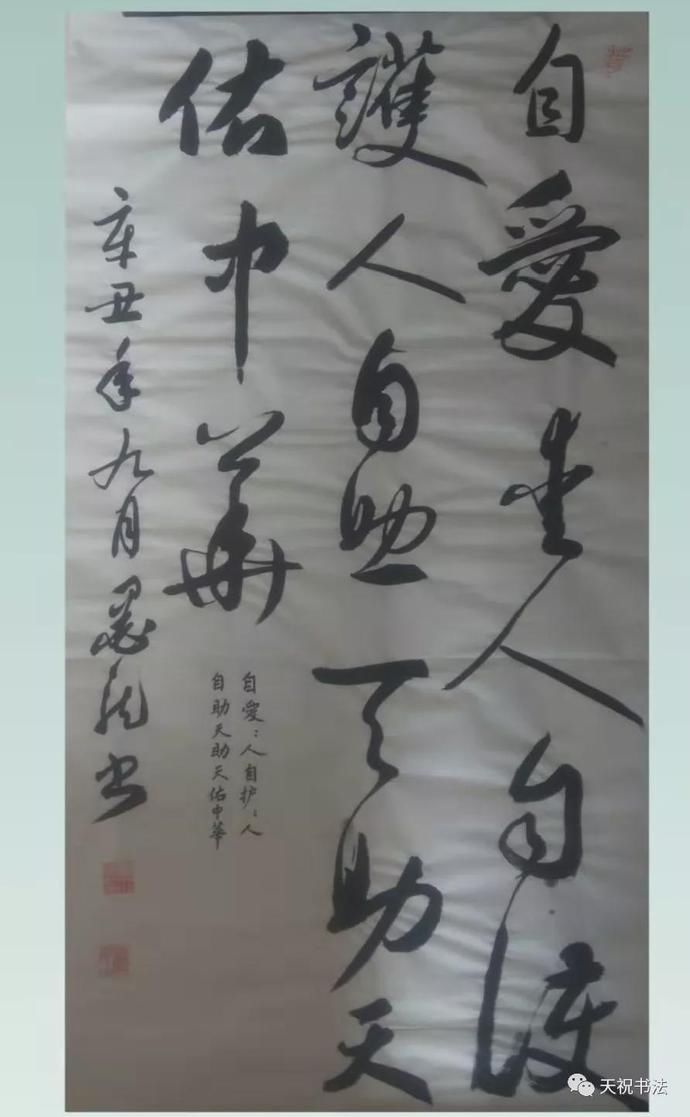 自愛爱人自護
護人自助天助天
佑中華
自愛：人自护：人
自助天助天佑中華
辛丑年九月书
天祝书法